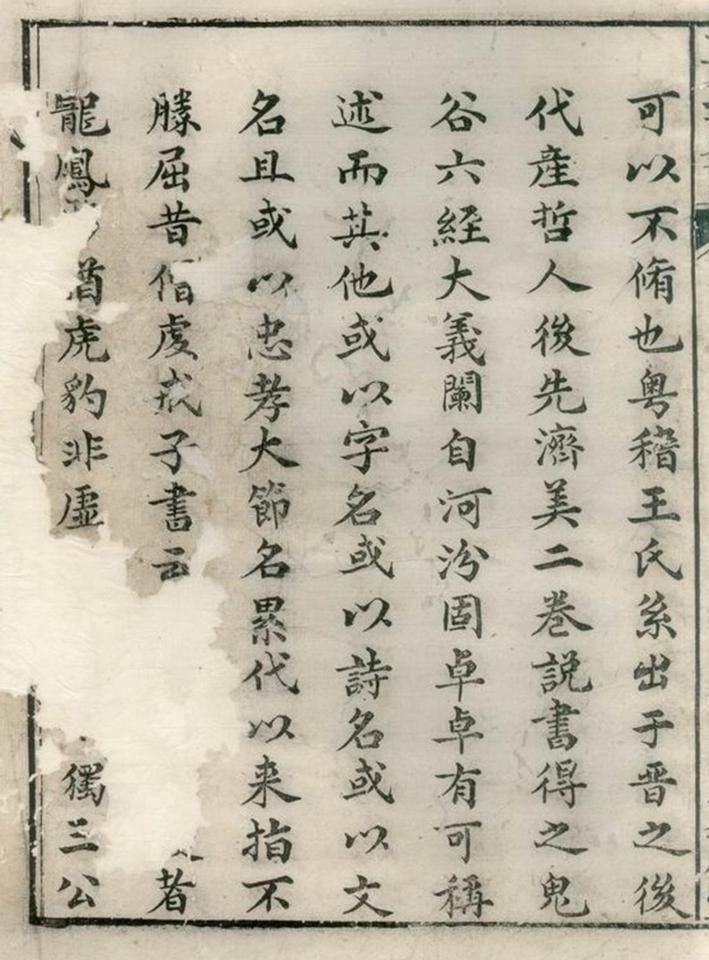 可以不脩也粤稽王氏系出于晋之後
代産哲人後先濟美二巻説書得之鬼
谷六経大義闡自河汾固卓卓有可稱
述而其他或以字名或以詩名或以文
名且或以忠孝大節名累代以来指不
勝屈昔僧虔戒子書云者
龍鳳酋虎豹非虚獨三公